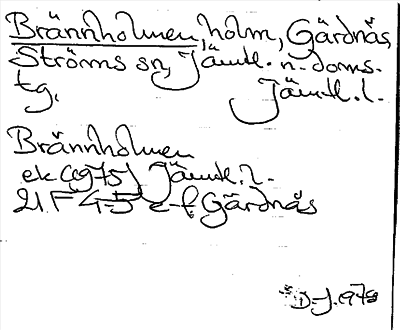 Brännholmen, holm, Gärdnäs,
Ströms sn, Jämtl. n. doms.
tg. Jämtl. l.
Brännholmen
ek (1975) Jämtl. l.
21 F 4-5 e-f, Gärdnäs